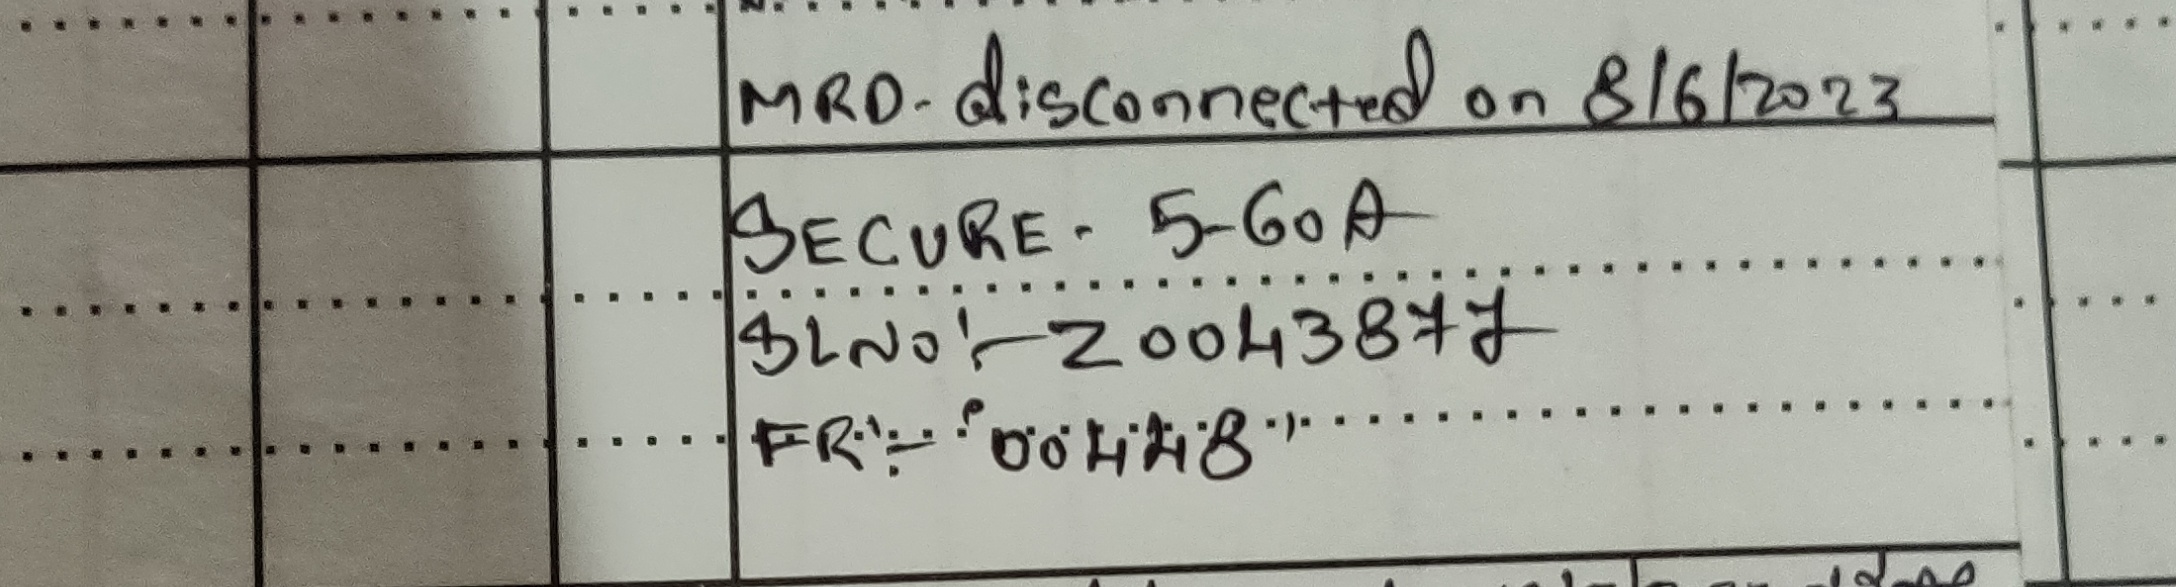 MRD- disconnected on 8/6/2023
SECURE - 5-60A
SLNO:- 20043877
FR:- "00448"